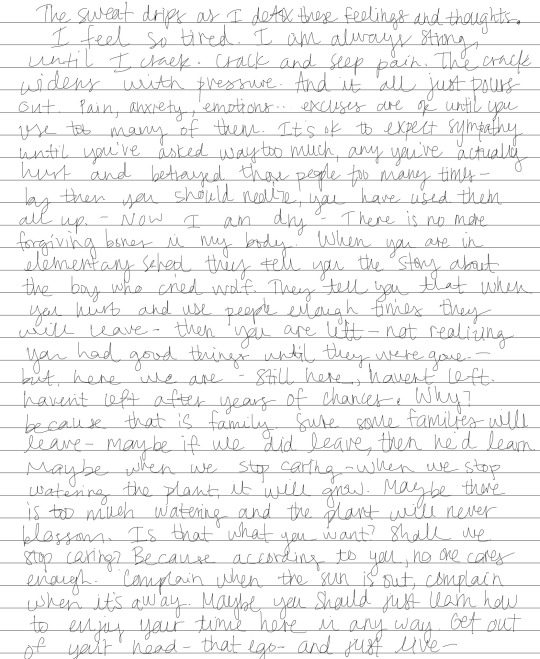 The sweat drips as I detox these feelings and thoughts.
I feel so tired. I am always strong,
until I crack. Crack and seep pain. The crack
widens with pressure. And it all just pours
out. Pain, anxiety, emotions.. excuses are ok until you
use too many of them. It's ok to expect sympathy
until you've asked way too much, any you've actually
hurt and betrayed those people too many times -
by then you should realize, you have used them
all up. - Now I am dry - There is no more
forgiving bones in my body. When you are in
elementary school they tell you the story about
the boy who cried wolf. They tell you that when
you hurt and use people enough times they
will leave - then you are left - not realizing
you had good things until they were gone. -
but, here we are - still here, havent left.
havent left after years of chances. Why?
because that is family. Sure some families will
leave - maybe if we did leave, then he'd learn.
Maybe when we stop caring - when we stop
watering the plant, it will grow. Maybe there
is too much watering and the plant will never
blossom. Is that what you want? Shall we
stop caring? Because according to you, no one cares
enough. Complain when the sun is out, complain
when it's away. Maybe you should just learn how
to enjoy your time here in any way. Get out
of your head - that ego - and just live -